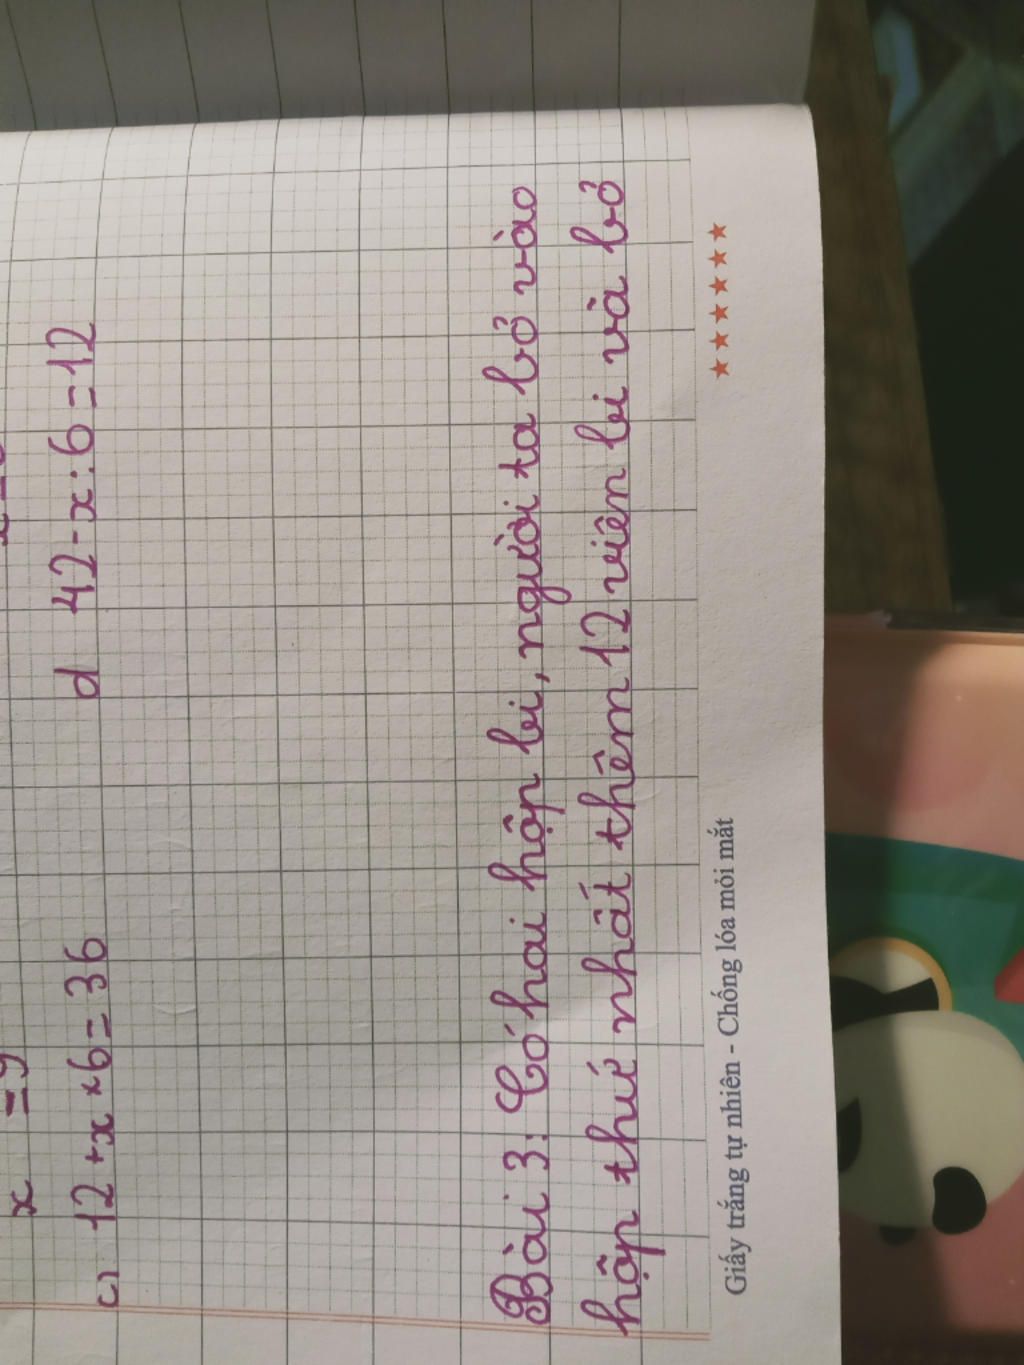 x = 9
c) 12 + x × 6 = 36 d 42 - x : 6 = 12
Bài 3: Có hai hộp bi, người ta bỏ vào
hộp thứ nhất thêm 12 viên bi và bỏ
Giấy trắng tự nhiên - Chống lóa mỏi mắt ★★★★★★